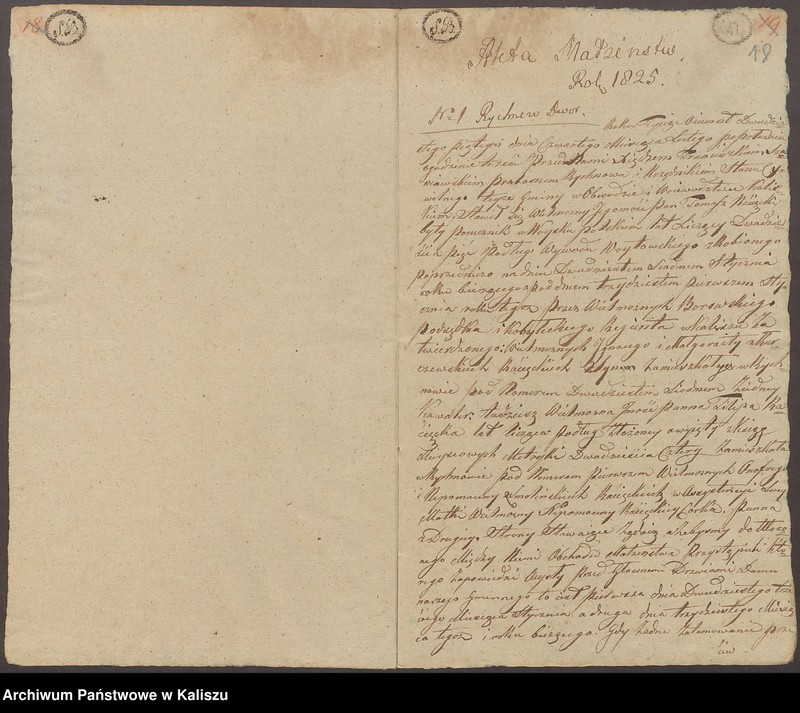 18
S.B
S.B
19
19
Akta Małżeństw,
Rok 1825.
No 1 Rychnow Dwor.
Roku Tysiąc Osiemset Dwudzie
stego piątego dnia Czwartego Miesiąca Lutego popołudniu
o godzinie trzeci Przed Nami Xiędzem Franciszkiem
Proboszczem Rychnowa i Urzędnikiem Stanu Cy
wilnego tejże Gminy w Obwodzie i Województwie Kalis
kiem. Stawił się Wielmożny Jegomość pan Tomasz
były porucznik w Woysku polskiem lat Liczący Dwadzie
ścia pięć podług Wywodu Woytowskiego zrobionego
poprzedniczo na dniu Dwudziestem Siodmem Stycznia
roku bieżącego a pod dniem trzydziestem pierwszem Sty
cznia roku tegoż przez Wielmożnych Borowskiego
podsędka i Kobyłeckiego Rejenta w Kaliszu Za
twierdzonego: Wielmożnych Ignacego i Małgorzaty
Syn Zamieszkały w Rych
nowie pod Numerem Dwudziestem Siodmem
Kawaler. tudziesz Wielmożna Jmość Panna
lat licząca podług złożoney awyięty z ksiąg
Metryki Dwadzieścia Cztery Zamieszkała
w Rychnowie pod Numerem pierwszem Wielmożnych Onufrego
i Nepomuceny w Assystencyi Swy
Matki Wielmożny Nepomuceny Corka, panna
z Drugiey Strony Stawaiące żądaią ażebysmy do
nego Między Niemi Obchodu Małżeństwa Przystąpieli
rego zapowiedzi wyszły przed Głownemi Drzwiami Domu
naszego Gminnego to iest pierwsza dnia Dwudziestego trze
ciego Miesiąca Stycznia a druga dnia trzydziestego Miesią
ca tegoż i roku bieżącego. Gdy żadne zatamowanie prze
ciw
Archiwum Państwowe w Kaliszu